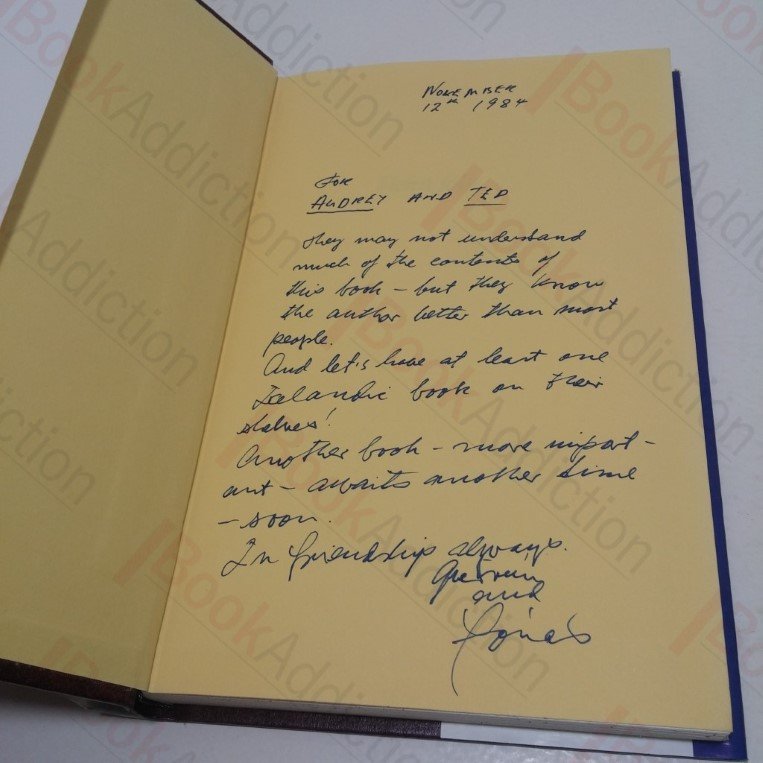 NOVEMBER
12th 1984
FOR
AUDREY AND TED
They may not understand
much of the contents of
this book – but they know
the author better than most
people.
And let's have at least one
Icelandic book on their
shelves!
Another book – more import-
ant – awaits another time
– soon.
In friendship always.
and
Jónas
BookAddiction